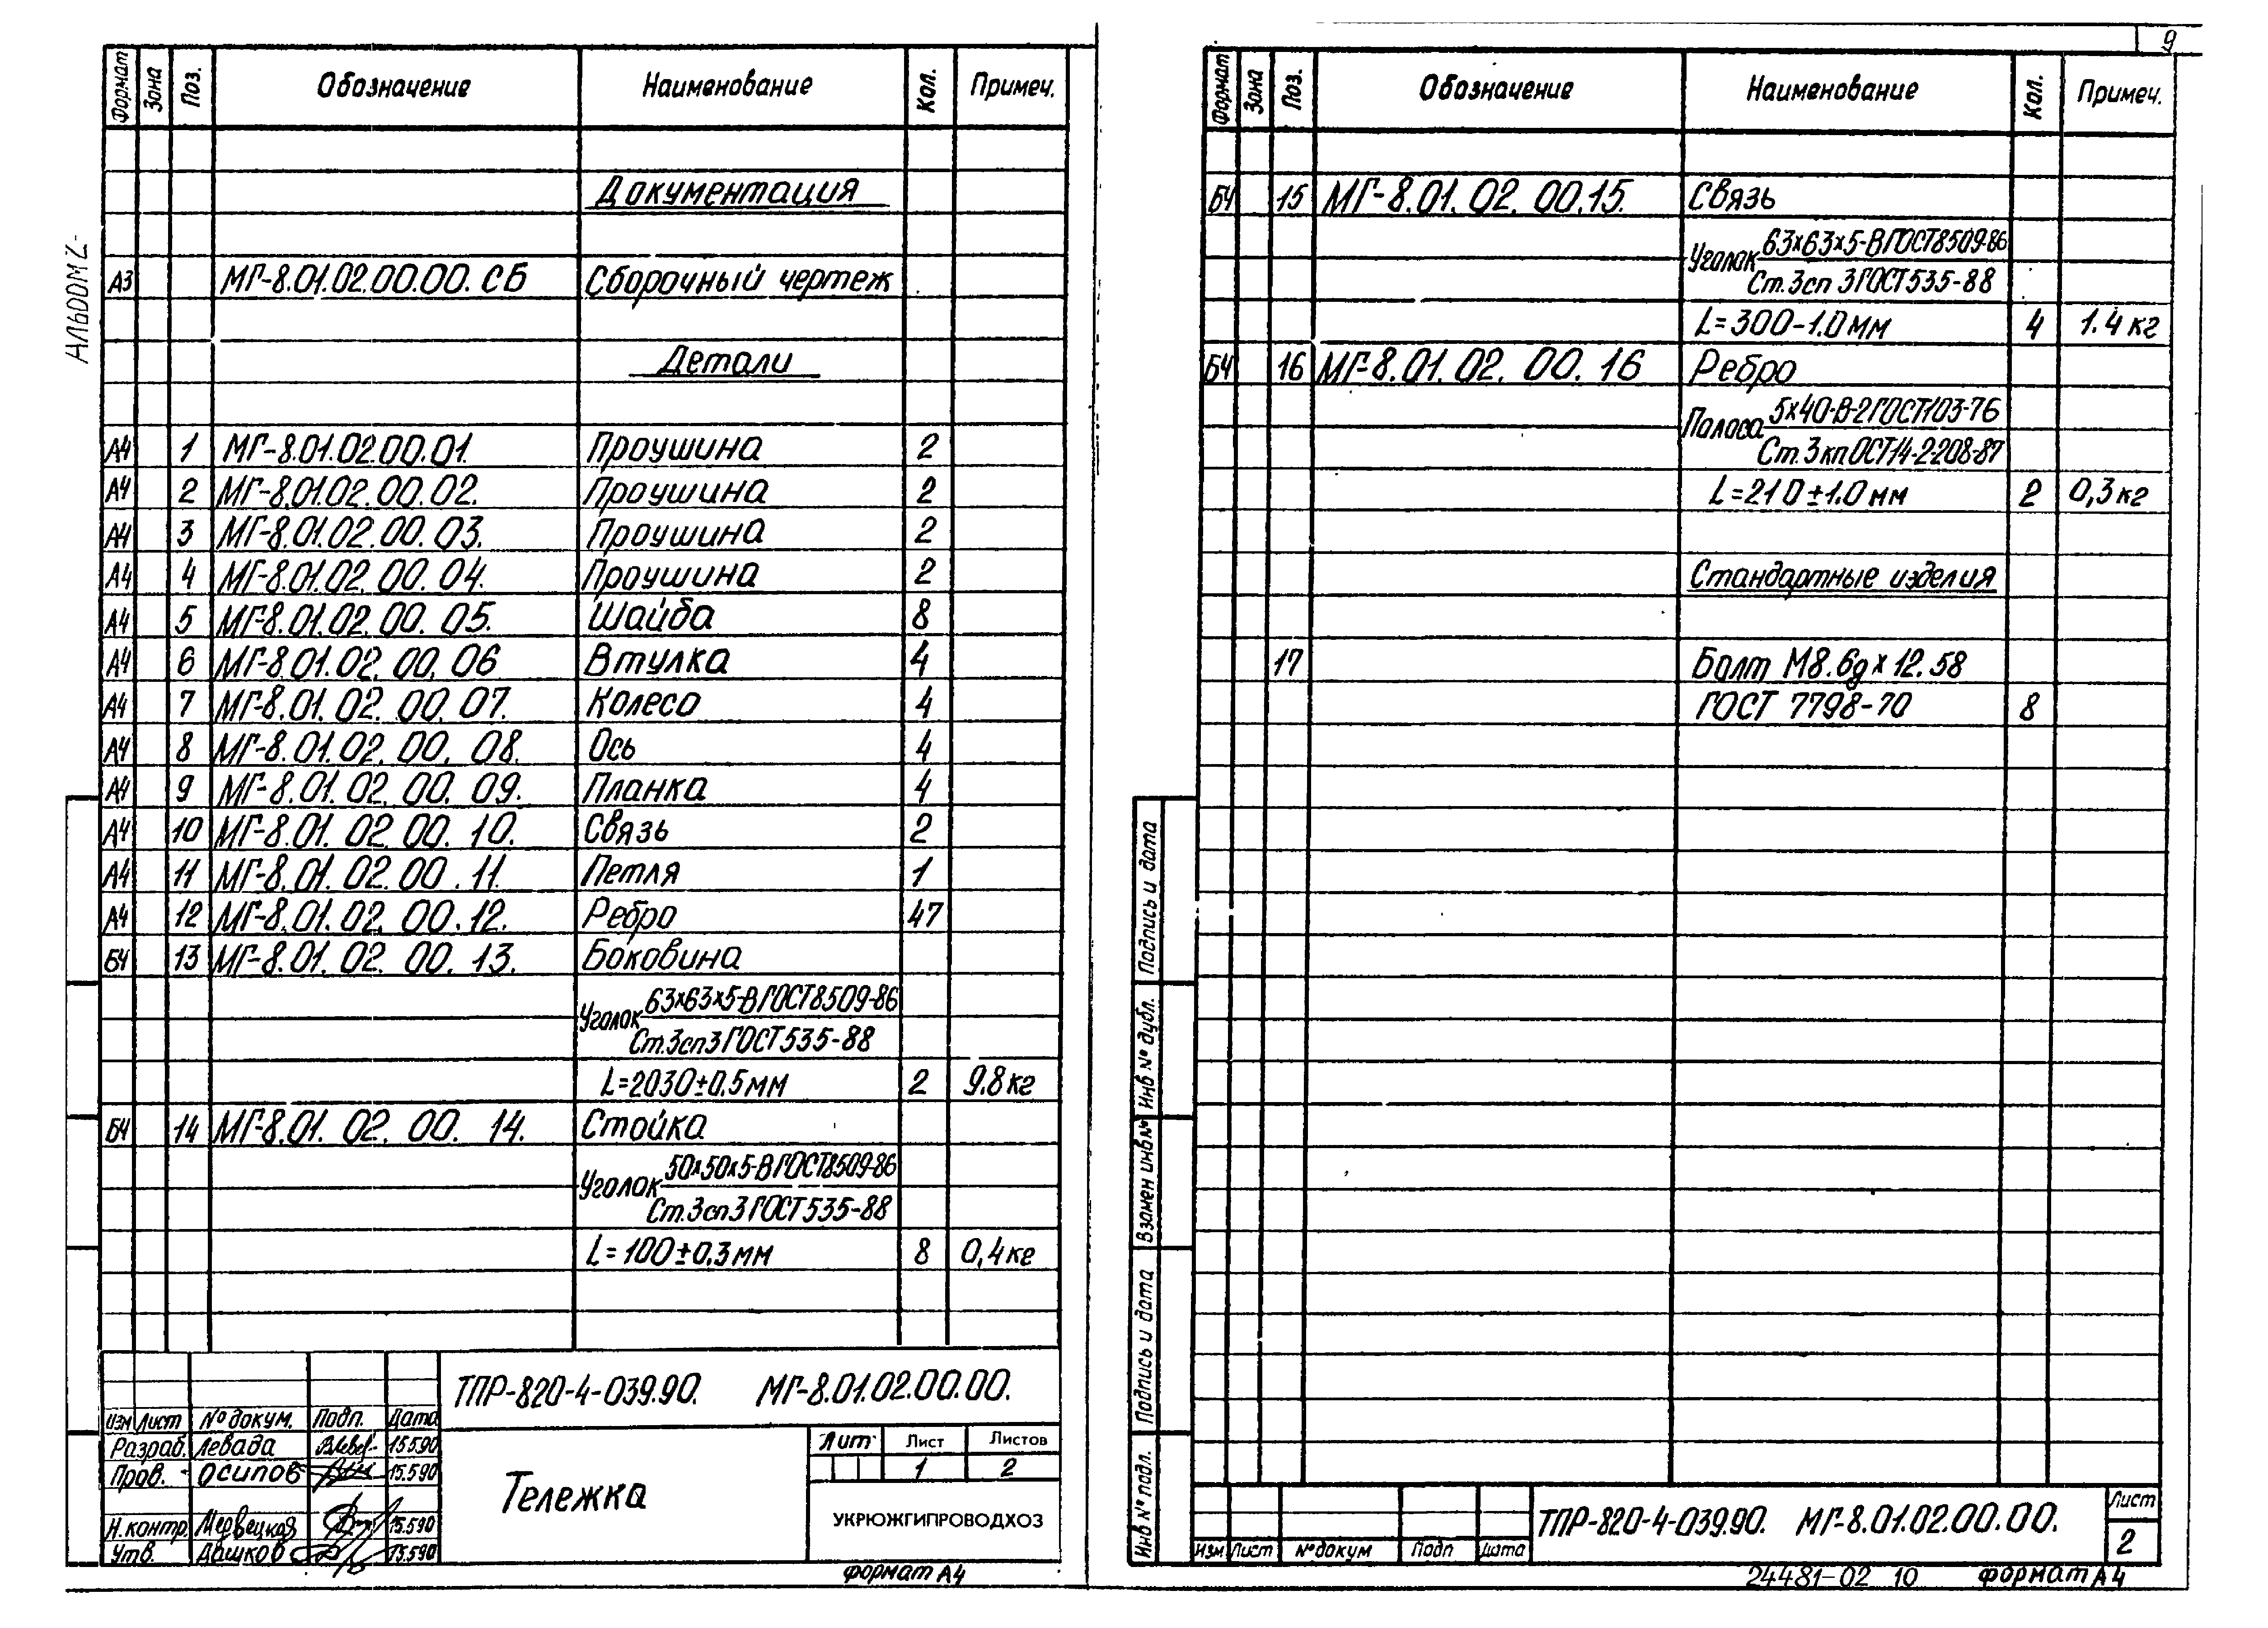 Альбом 2
Формат Зона Поз. Обозначение Наименование Кол. Примеч.
Документация
А3 МГ-8.01.02.00.00.СБ Сборочный чертеж
Детали
А4 1 МГ-8.01.02.00.01. Проушина 2
А4 2 МГ-8.01.02.00.02. Проушина 2
А4 3 МГ-8.01.02.00.03. Проушина 2
А4 4 МГ-8.01.02.00.04. Проушина 2
А4 5 МГ-8.01.02.00.05. Шайба 8
А4 6 МГ-8.01.02.00.06 Втулка 4
А4 7 МГ-8.01.02.00.07. Колесо 4
А4 8 МГ-8.01.02.00.08. Ось 4
А4 9 МГ-8.01.02.00.09. Планка 4
А4 10 МГ-8.01.02.00.10. Связь 2
А4 11 МГ-8.01.02.00.11. Петля 1
А4 12 МГ-8.01.02.00.12. Ребро 47
БЧ 13 МГ-8.01.02.00.13. Боковина
Уголок 63х63х5-В ГОСТ8509-86
Ст.3сп3 ГОСТ535-88
L=2030±0.5мм 2 9.8кг
БЧ 14 МГ-8.01.02.00.14. Стойка
Уголок 50х50х5-В ГОСТ8509-86
Ст.3сп3 ГОСТ535-88
L=100±0.3мм 8 0,4кг
ТПР-820-4-039.90. МГ-8.01.02.00.00.
Изм Лист № докум. Подп. Дата
Разраб. Левада 15.5.90
Пров. Осипов 15.5.90
Н.контр. Медвецкая 15.5.90
Утв. Дашков 15.5.90
Тележка
Лит Лист Листов
1 2
УКРЮЖГИПРОВОДХОЗ
формат А4
9
Формат Зона Поз. Обозначение Наименование Кол. Примеч.
БЧ 15 МГ-8.01.02.00.15. Связь
Уголок 63х63х5-В ГОСТ8509-86
Ст.3сп 3ГОСТ535-88
L=300-1.0мм 4 1.4кг
БЧ 16 МГ-8.01.02.00.16 Ребро
Полоса 5х40-В-2ГОСТ103-76
Ст.3кп ОСТ14-2-208-87
L=210±1.0мм 2 0,3кг
Стандартные изделия
17 Болт М8.6gх12.58
ГОСТ 7798-70 8
Подпись и дата
Инв № дубл.
Взамен инв №
Подпись и дата
Инв № подл.
Изм Лист № докум Подп Дата
ТПР-820-4-039.90. МГ-8.01.02.00.00.
Лист
2
24481-02 10 формат А4